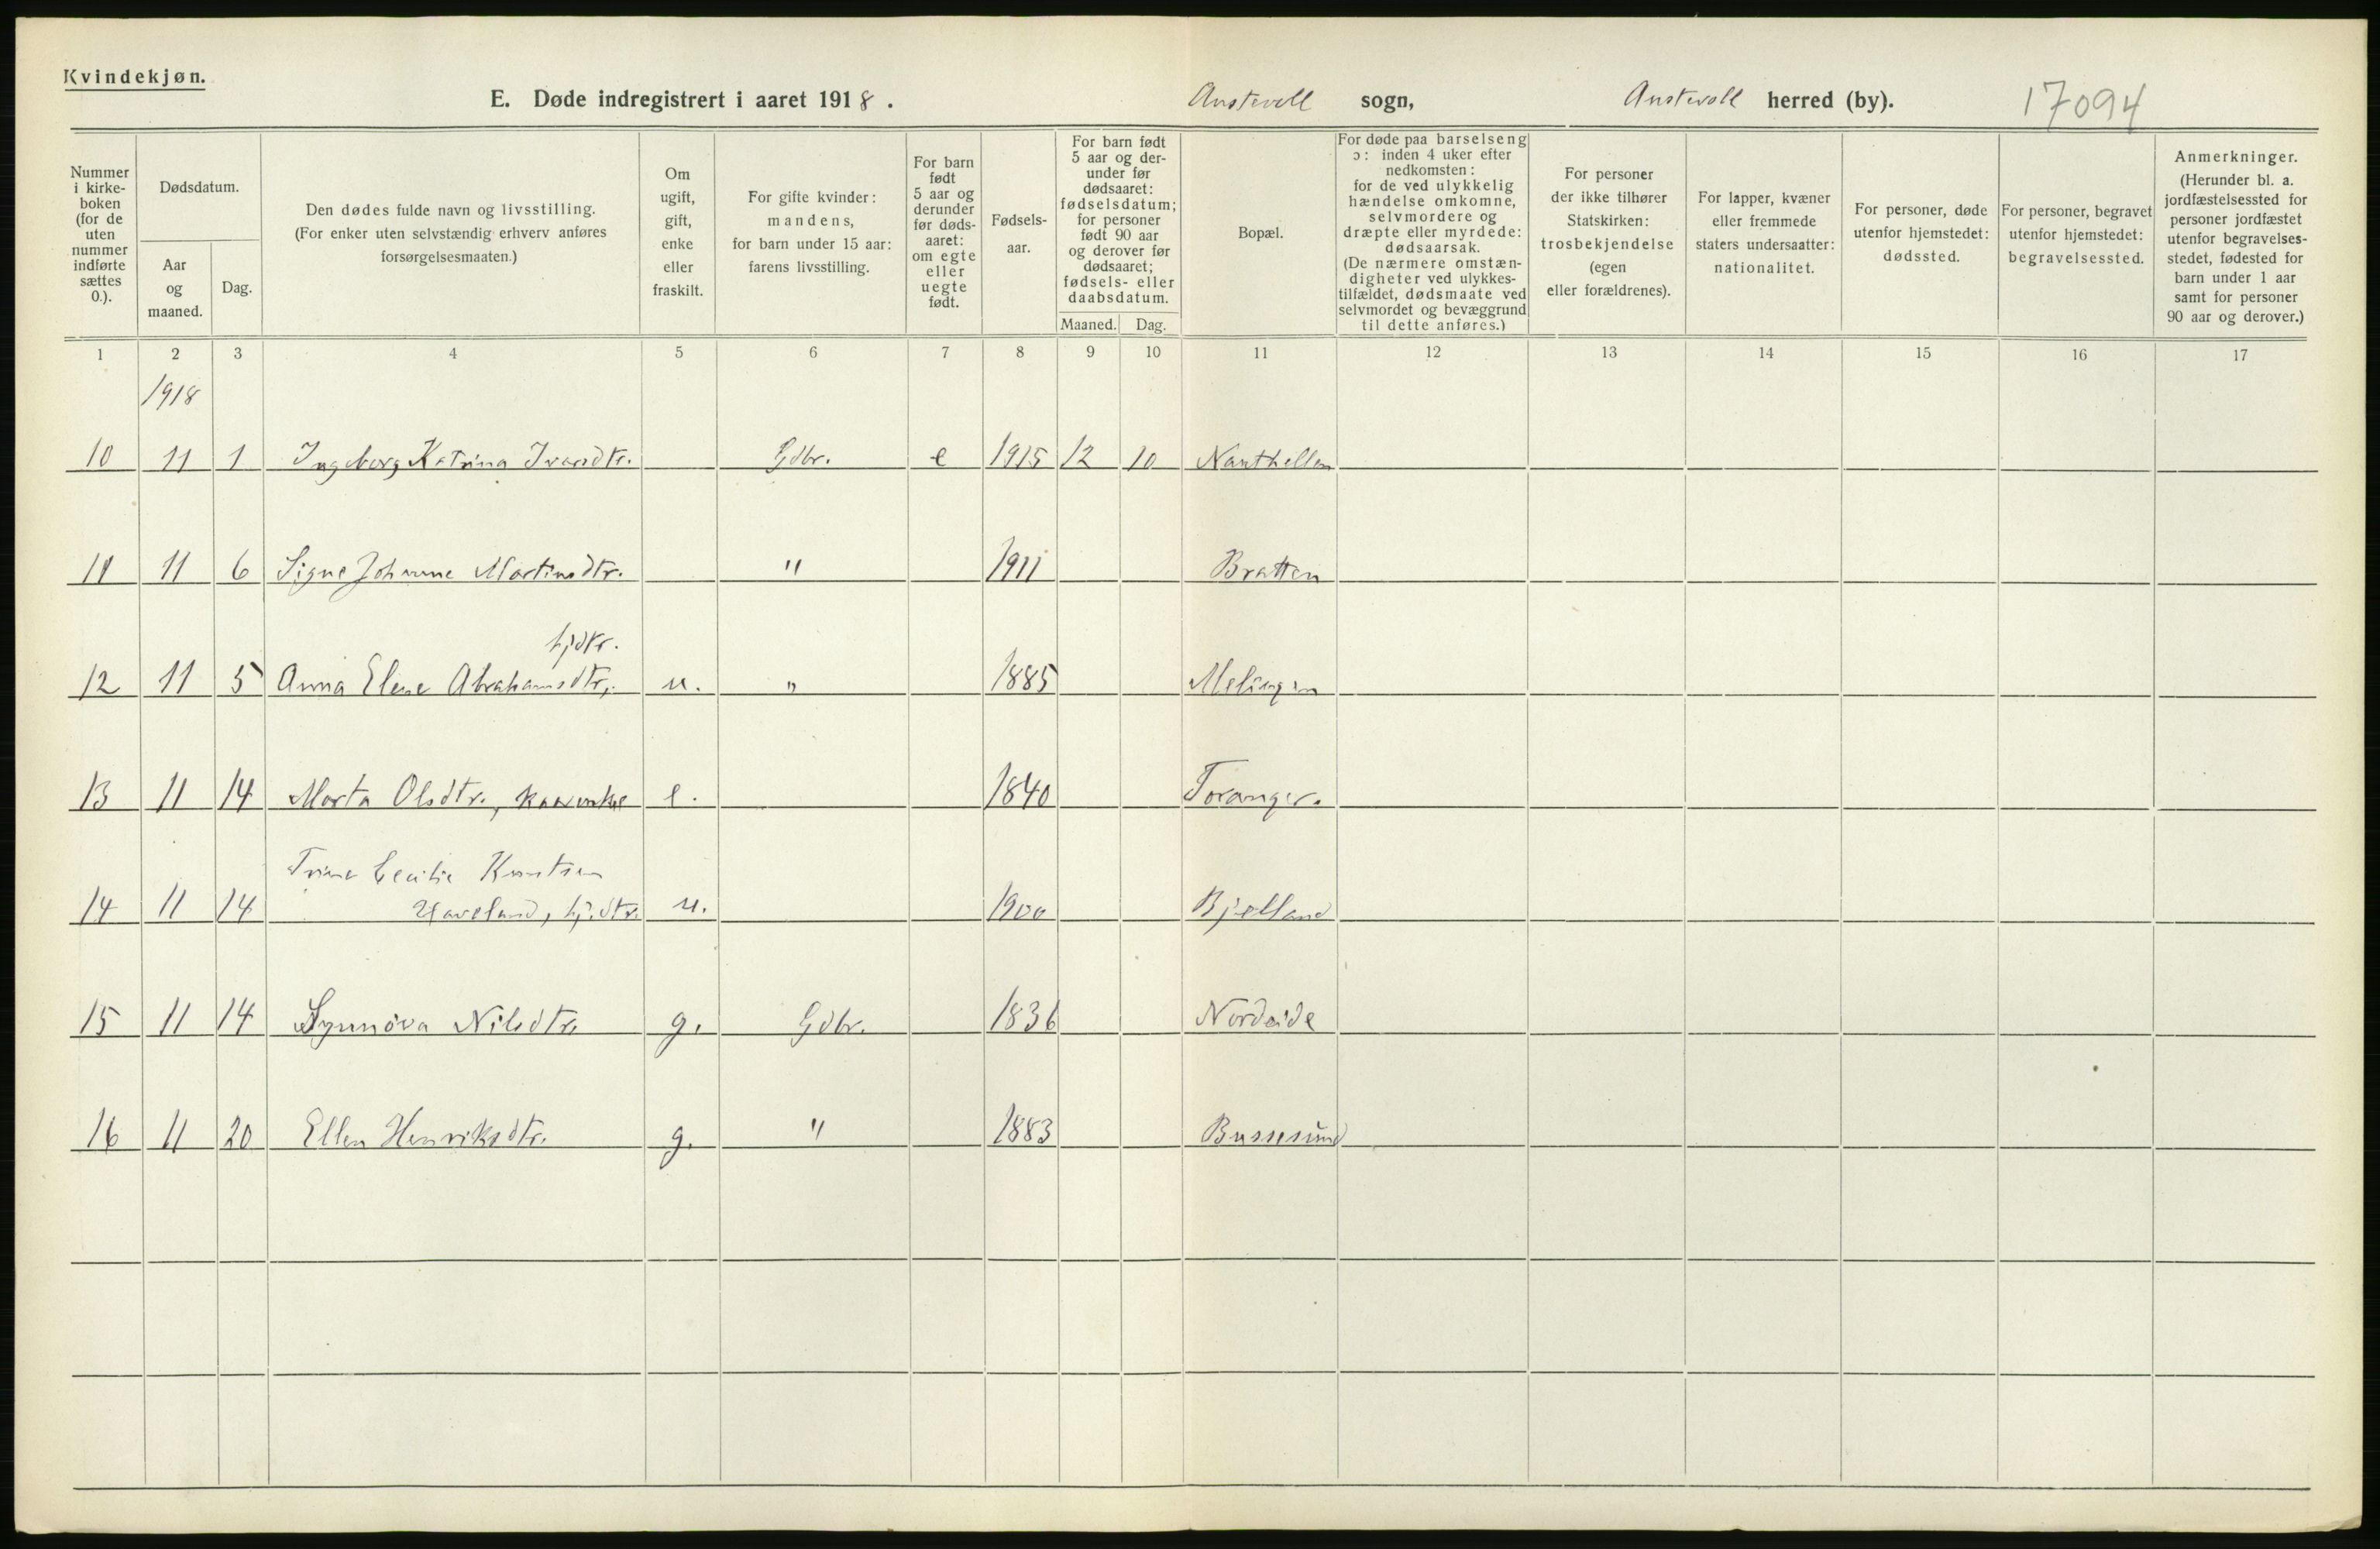 Kvindekjøn.
E. Døde indregistrert i aaret 1918. Austevoll sogn, Austevoll herred (by). 17094
Nummer i kirkeboken (for de uten nummer indførte sættes 0.).
Dødsdatum.
Aar og maaned.
Dag.
Den dødes fulde navn og livsstilling. (For enker uten selvstændig erhverv anføres forsørgelsesmaaten.)
Om ugift, gift, enke eller fraskilt.
For gifte kvinder: mandens, for barn under 15 aar: farens livsstilling.
For barn født 5 aar og derunder før dødsaaret: om egte eller uegte født.
Fødselsaar.
For barn født 5 aar og derunder før dødsaaret: fødselsdatum; for personer født 90 aar og derover før dødsaaret; fødsels- eller daabsdatum.
Maaned. Dag.
Bopæl.
For døde paa barselseng ɔ: inden 4 uker efter nedkomsten: for de ved ulykkelig hændelse omkomne, selvmordere og dræpte eller myrdede: dødsaarsak. (De nærmere omstændigheter ved ulykkestilfældet, dødsmaate ved selvmordet og bevæggrund til dette anføres.)
For personer der ikke tilhører Statskirken: trosbekjendelse (egen eller forældrenes).
For lapper, kvæner eller fremmede staters undersaatter: nationalitet.
For personer, døde utenfor hjemstedet: dødssted.
For personer, begravet utenfor hjemstedet: begravelsessted.
Anmerkninger. (Herunder bl. a. jordfæstelsessted for personer jordfæstet utenfor begravelsesstedet, fødested for barn under 1 aar samt for personer 90 aar og derover.)
1 2 3 4 5 6 7 8 9 10 11 12 13 14 15 16 17
1918
10 11 1 Ingeborg Katrina Ivarsdtr. Gdbr. e 1915 12 10
11 11 6 Signe Johanne Martinsdtr. " 1911 Bratten
hjdtr.
12 11 5 Anna Elene Abrahamsdtr., u. " 1885 Melingen
13 11 14 Marta Olsdtr., kaarenke e. 1840 Toranger.
Trine Cecilie Knutsen
14 11 14 Haveland, hj.dtr. u. 1900 Bjelland
15 11 14 Synnöva Nilsdtr. g. Gdbr. 1836 Nordeide
16 11 20 Ellen Henriksdtr. g. " 1883 Bussesund